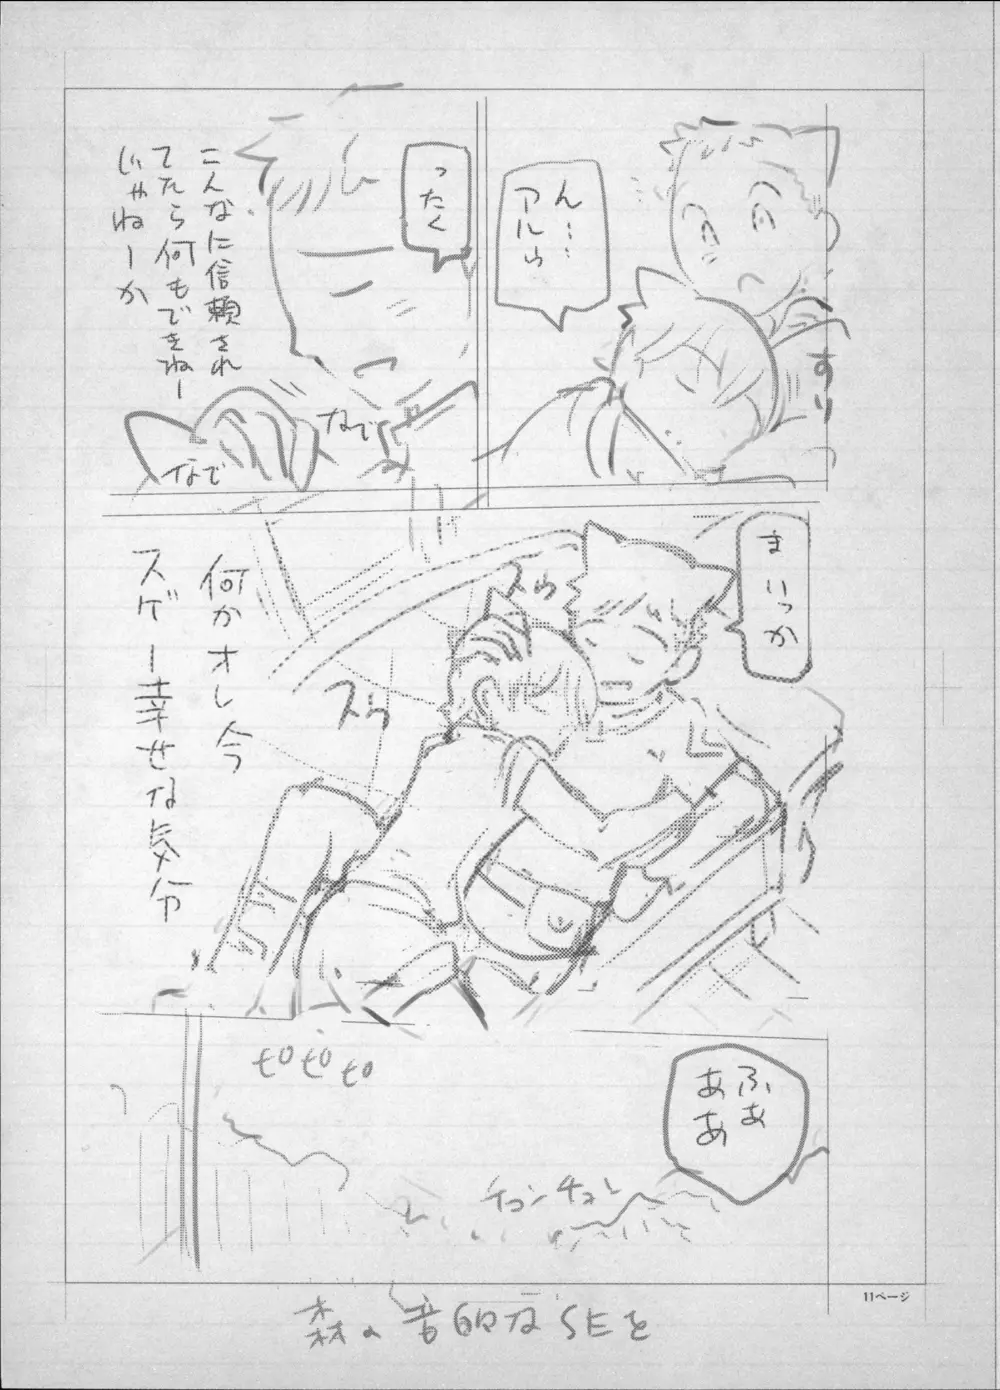 ん……
アルら
すり
ったく
こんなに信頼され
てたら何もできねー
じゃねーか
なで
なで
まいっか
スゥ
スゥ
何かオレ今
スゲー幸せな気分
ふぁ
ああ
ピピピ
チュンチュン
11ページ
森の音的なSEを